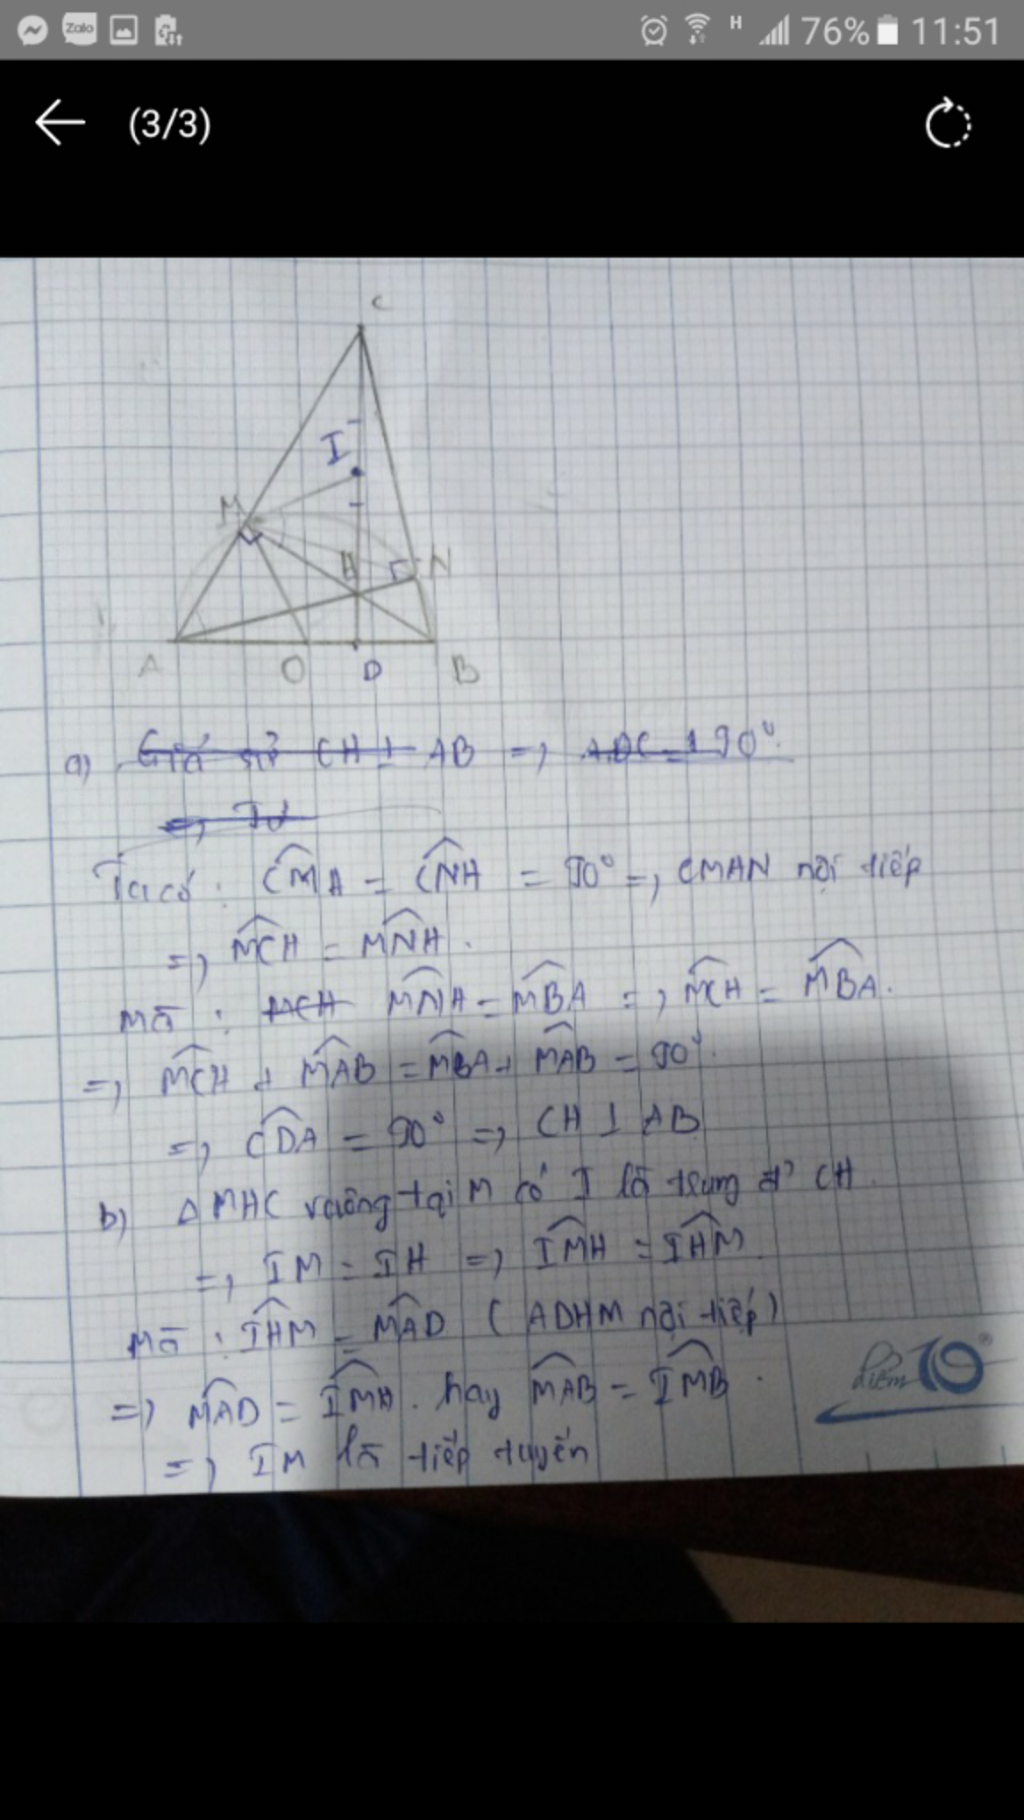 Zalo H 76% 11:51
(3/3)
C
I
M
H N
A O D B
a) Giả sử CH ⊥ AB => ADC = 90°
=> Tứ
Ta có : CMA = CNH = 90° => CMAN nội tiếp
=> MCH = MNH .
mà : MCH MNH = MBA => MCH = MBA .
=> MCH + MAB = MBA + MAB = 90° .
=> CDA = 90° => CH ⊥ AB
b) Δ MHC vuông tại M có I là trung đ' CH .
=> IM = IH => IMH = IHM
mà : IHM = MAD ( ADHM nội tiếp )
=> MAD = IMH . hay MAB = IMB .
=> IM là tiếp tuyến
điểm 10